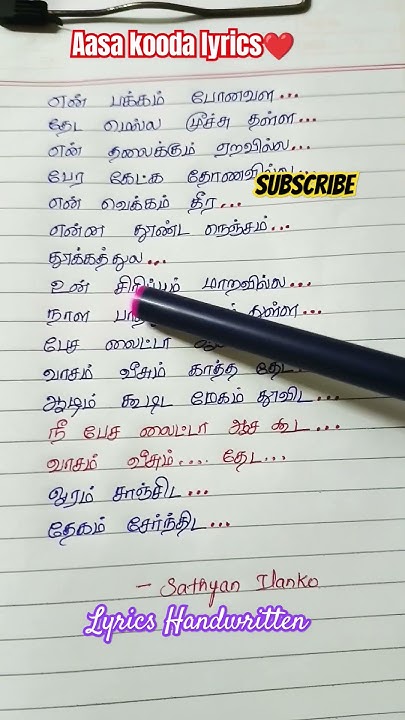 Aasa kooda lyrics❤️
என் பக்கம் போனவள...
தேட மெல்ல மூச்சு தள்ள...
என் தலைக்கும் ஏறவில்ல...
பேர கேட்க தோணவில்ல...
SUBSCRIBE
என் வெக்கம் தீர...
என்ன தூண்ட நெஞ்சம்...
தூக்கத்துல...
உன் சிரிப்பும் மாறவில்ல...
நாள தள்ள...
பேச லைட்டா
வாசம் வீசும் காத்த தேட...
ஆடிம் கூடிட மேகம் தூவிட...
நீ பேச லைட்டா ஆச கூட...
வாசம் வீசும்.... தேட...
ஓரம் சாஞ்சிட...
தேகம் சேர்ந்திட...
- Sathyan Ilanko
Lyrics Handwritten